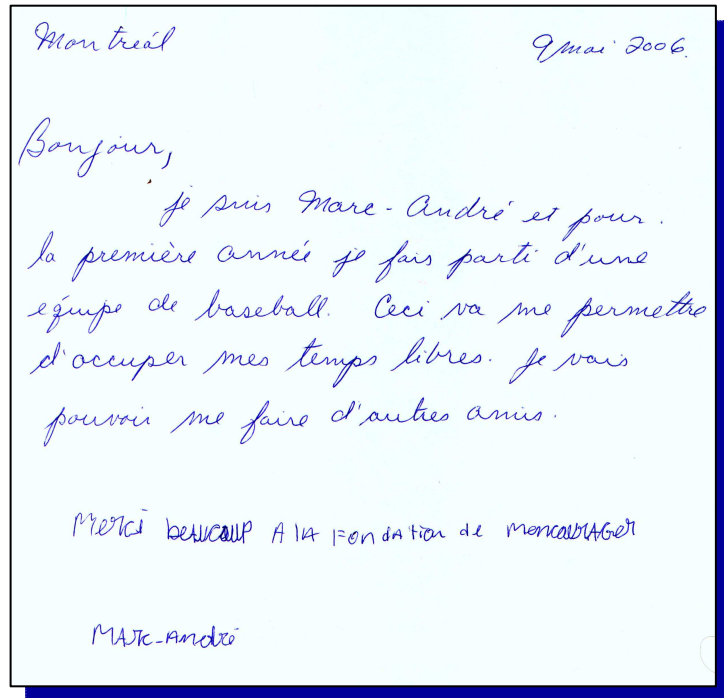 Montreál 9 mai 2006.
Bonjour,
je suis Marc-André et pour.
la première année je fais parti d'une
equipe de baseball. Ceci va me permettre
d'occuper mes temps libres. Je vais
pouvoir me faire d'autres amis.
Merci beaucoup A lA Fondation de mencourAGer
MArc-André